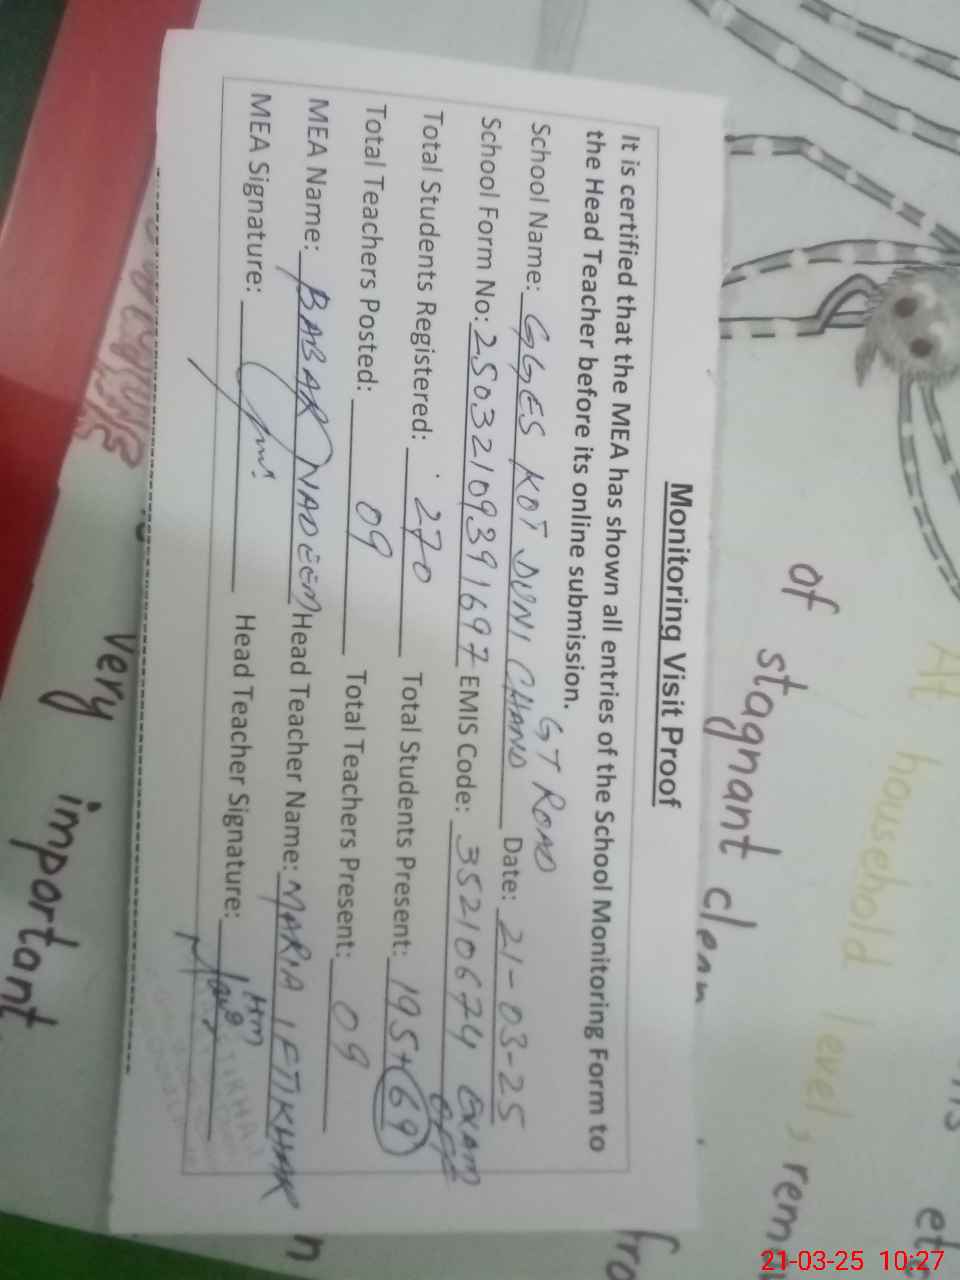 Monitoring Visit Proof
It is certified that the MEA has shown all entries of the School Monitoring Form to
the Head Teacher before its online submission.
GT ROAD
School Name: GGES KOT DUNI CHAND Date: 21-03-25
School Form No: 25032109391697 EMIS Code: 35210674 EXAM
OFF
Total Students Registered: 270 Total Students Present: 195+69
Total Teachers Posted: 09 Total Teachers Present: 09
MEA Name: BABAR NADEEM Head Teacher Name: MARIA IFTIKHAR
HM
MEA Signature: Head Teacher Signature:
At household level, rem
of stagnant clean
very important
fro
n
et
21-03-25 10:27